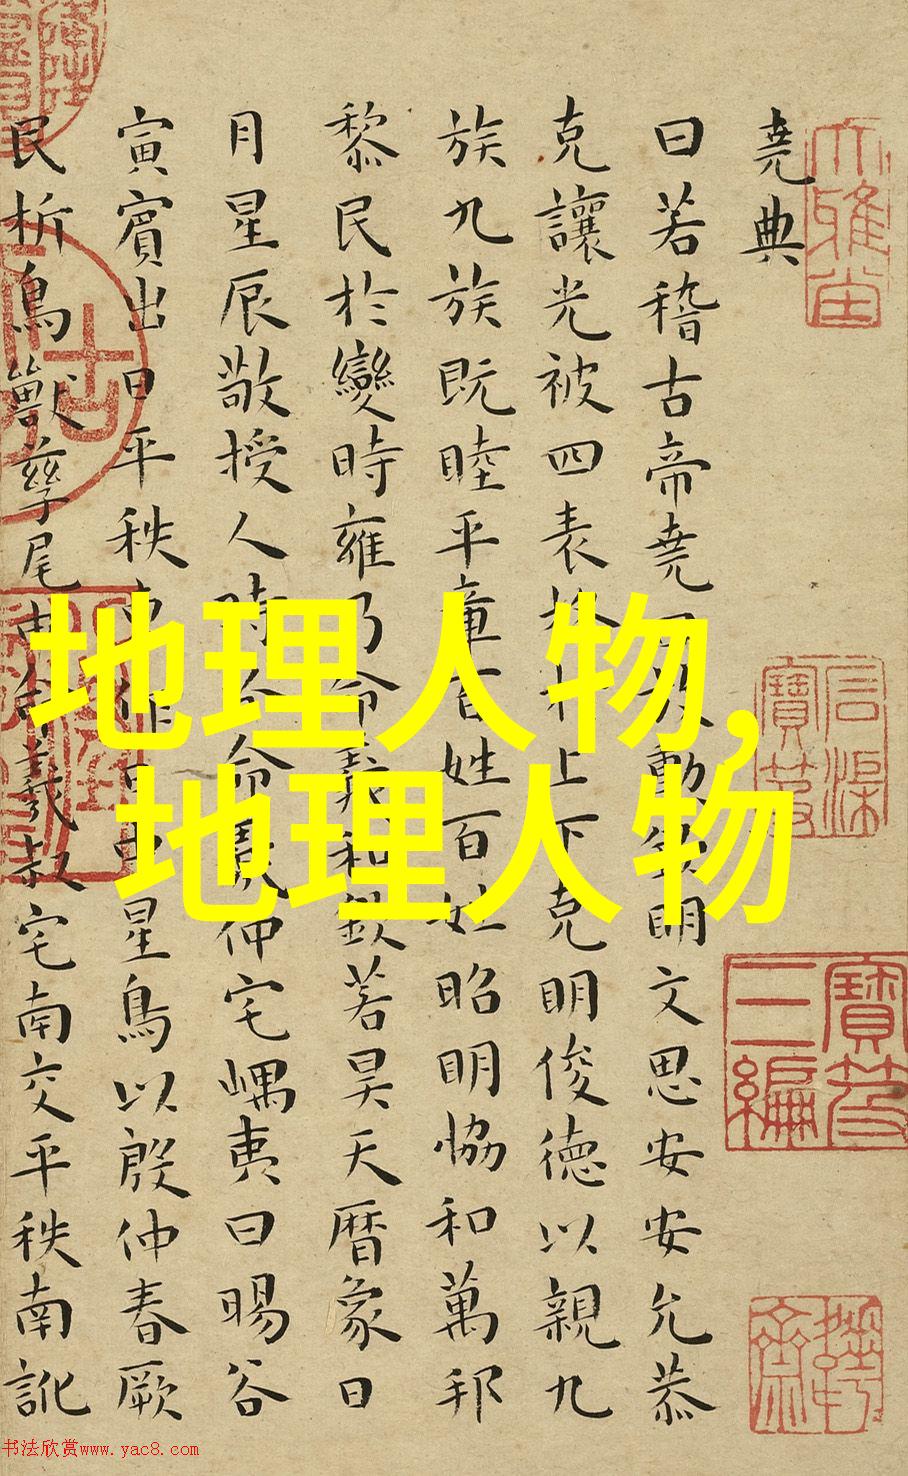 堯典
曰若稽古帝堯曰放勳欽明文思安安允恭
克讓光被四表格于上下克明俊德以親九
族九族既睦平章百姓百姓昭明協和萬邦
黎民於變時雍乃命羲和欽若昊天曆象日
月星辰敬授人時分命羲仲宅嵎夷曰暘谷
寅賓出日平秩東作日中星鳥以殷仲春厥
民析鳥獸孳尾申命羲叔宅南交平秩南訛
地理人物,
地理人物
寶笈
三編
书法欣赏www.yac8.com